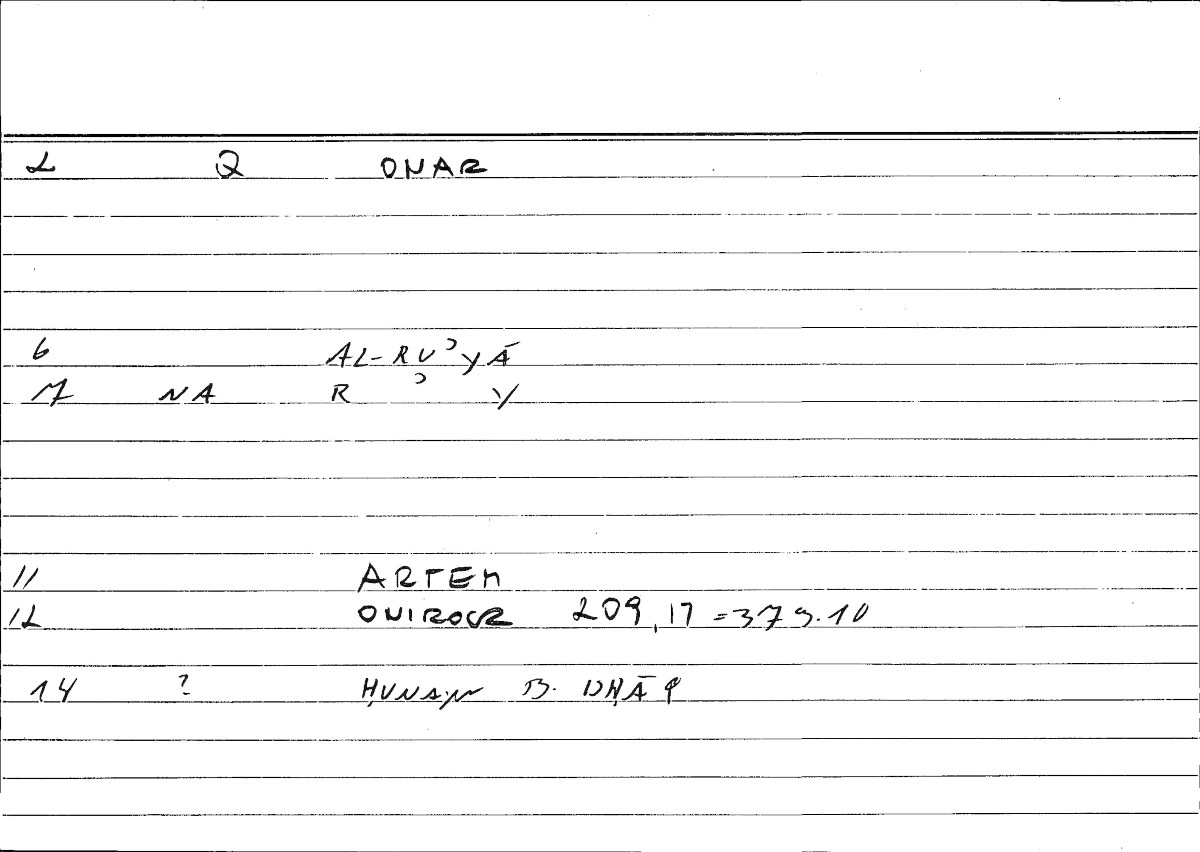 2 Q ONAR
6 AL-RUʾYĀ
17 NA R ʾ Y
11 ARTEM
12 ONIROCR 209,17 = 379.10
14 ? ḤUNAYN B. ISḤĀQ